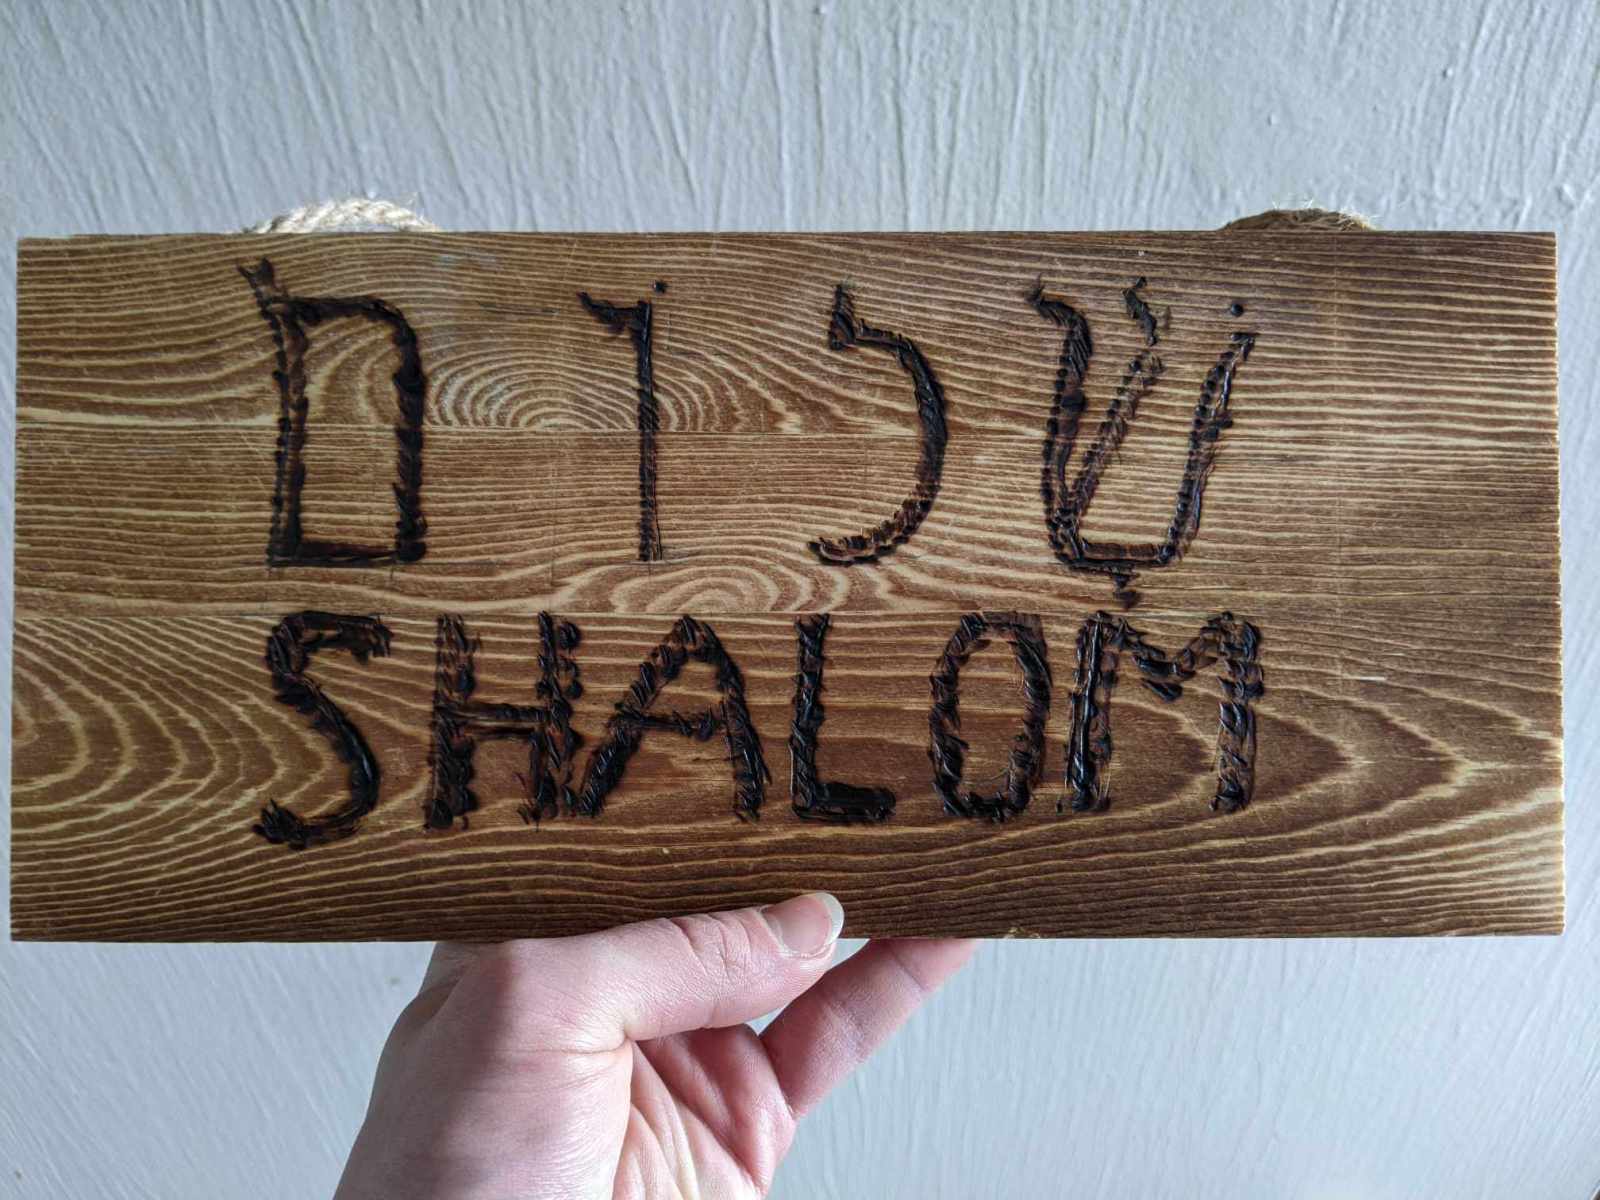 שָׁלוֹם
SHALOM